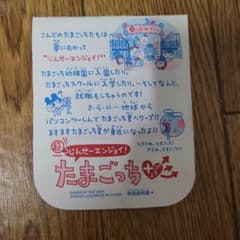 こんどのたまごっちたちは
夢にむかって
"じんせーエンジョイ!"
たまごっち幼稚園に入園したり、
たまごっちスクールに入学したり、…そしてなんと、
就職もしちゃうのです!
さ・ら・に…地球から
パソコンツーしんでたまごっち星へワープ!!
ますますたまごっち星が身近になったよ!!
じんせーエンジョイ!
たまごっち
取扱説明書